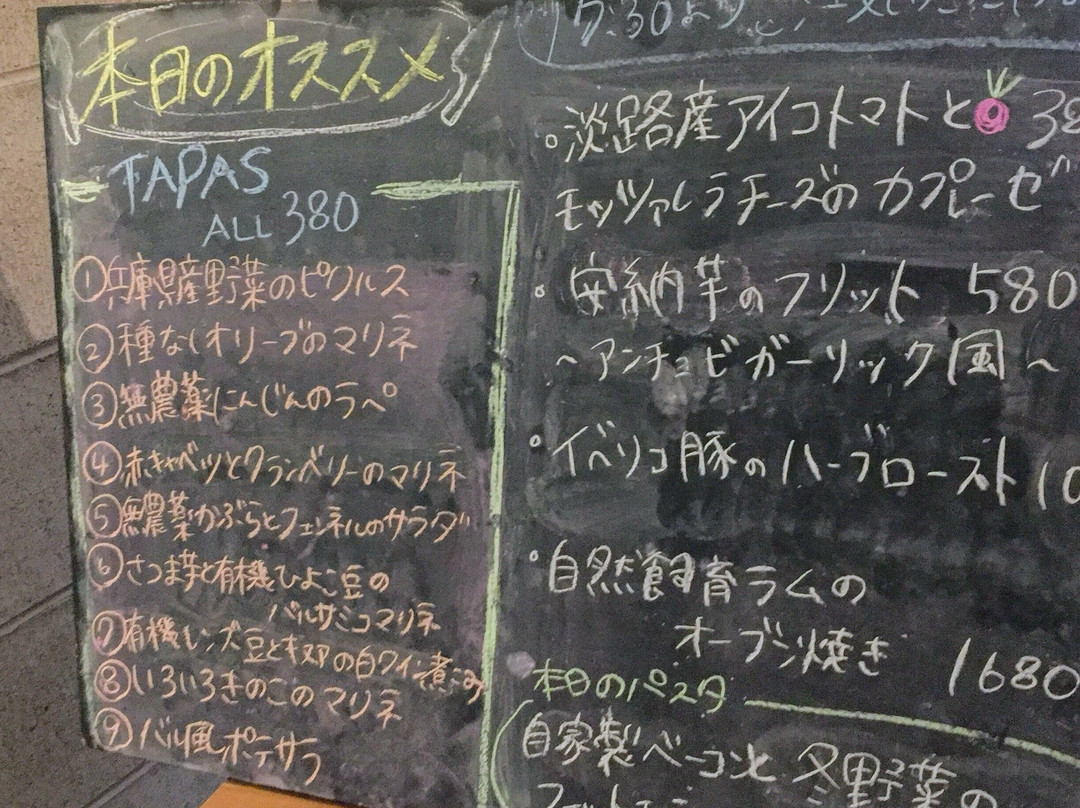 本日のオススメ
TAPAS
ALL 380
①兵庫県産野菜のピクルス
②種なしオリーブのマリネ
③無農薬にんじんのラペ
④赤キャベツとクランベリーのマリネ
⑤無農薬かぶらとフェンネルのサラダ
⑥さつま芋と有機ひよこ豆の
バルサミコマリネ
⑦有機レンズ豆とキヌアの白ワイン煮込み
⑧いろいろきのこのマリネ
⑨バル風ポテサラ
7:30より
淡路産アイコトマトと 38
モッツァレラチーズのカプレーゼ
安納芋のフリット 580
～アンチョビガーリック風～
イベリコ豚のハーブロースト 10
自然飼育ラムの
オーブン焼き 1680
本日のパスタ
自家製ベーコンと冬野菜の